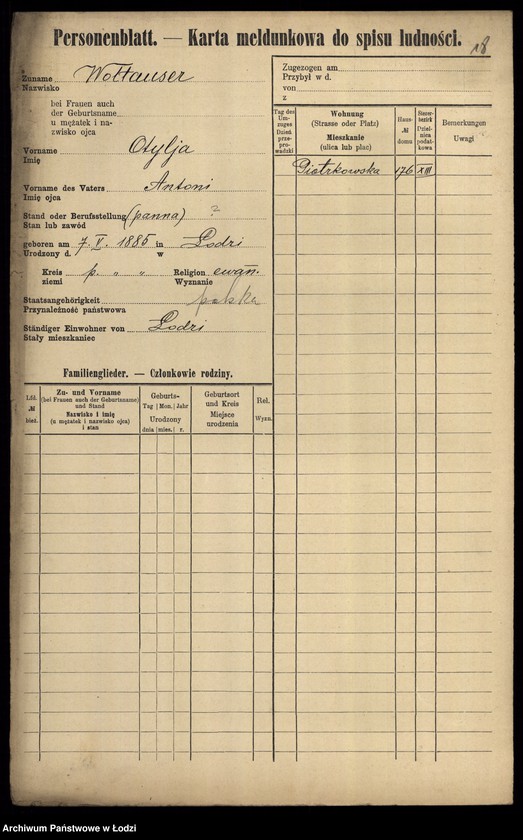 Personenblatt. — Karta meldunkowa do spisu ludności.
18
Zuname Wołtauser
Nazwisko
bei Frauen auch
der Geburtsname
u mężatek i na-
zwisko ojca
Vorname Otylja
Imię
Vorname des Vaters Antoni
Imię ojca
Stand oder Berufsstellung (panna) ?
Stan lub zawód
geboren am 7. V. 1885 in Lodzi
Urodzony d. w
Kreis p. " " Religion ewan.
ziemi Wyznanie
Staatsangehörigkeit polska
Przynależność państwowa
Ständiger Einwohner von Lodzi
Stały mieszkaniec
Familienglieder. — Członkowie rodziny.
Lfd. № bież.
Zu- und Vorname
(bei Frauen auch der Geburtsname)
und Stand
Nazwisko i imię
(u mężatek i nazwisko ojca)
i stan
Geburts-
Tag Mon. Jahr
Urodzony
dnia mies. r.
Geburtsort
und Kreis
Miejsce
urodzenia
Rel.
Wyzn.
Zugezogen am
Przybył w d.
von
z
Tag des
Um-
zuges
Dzień
prze-
pro-
wadzki
Wohnung
(Strasse oder Platz)
Mieszkanie
(ulica lub plac)
Haus-
№
domu
Steuer-
bezirk
Dziel-
nica
podat-
kowa
Bemerkungen
Uwagi
Piotrkowska 176 XIII
Archiwum Państwowe w Łodzi